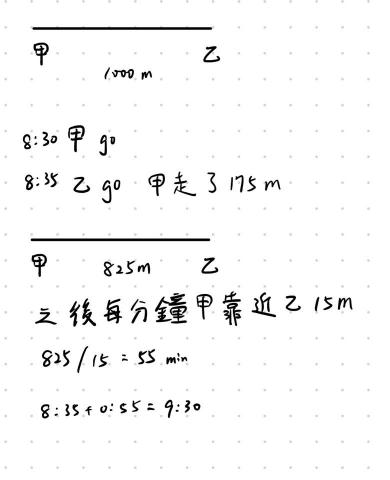 甲 乙
1000 m
8:30 甲 go
8:35 乙 go 甲走了175m
甲 825m 乙
之後每分鐘甲靠近乙15m
825/15 = 55 min
8:35+0:55=9:30